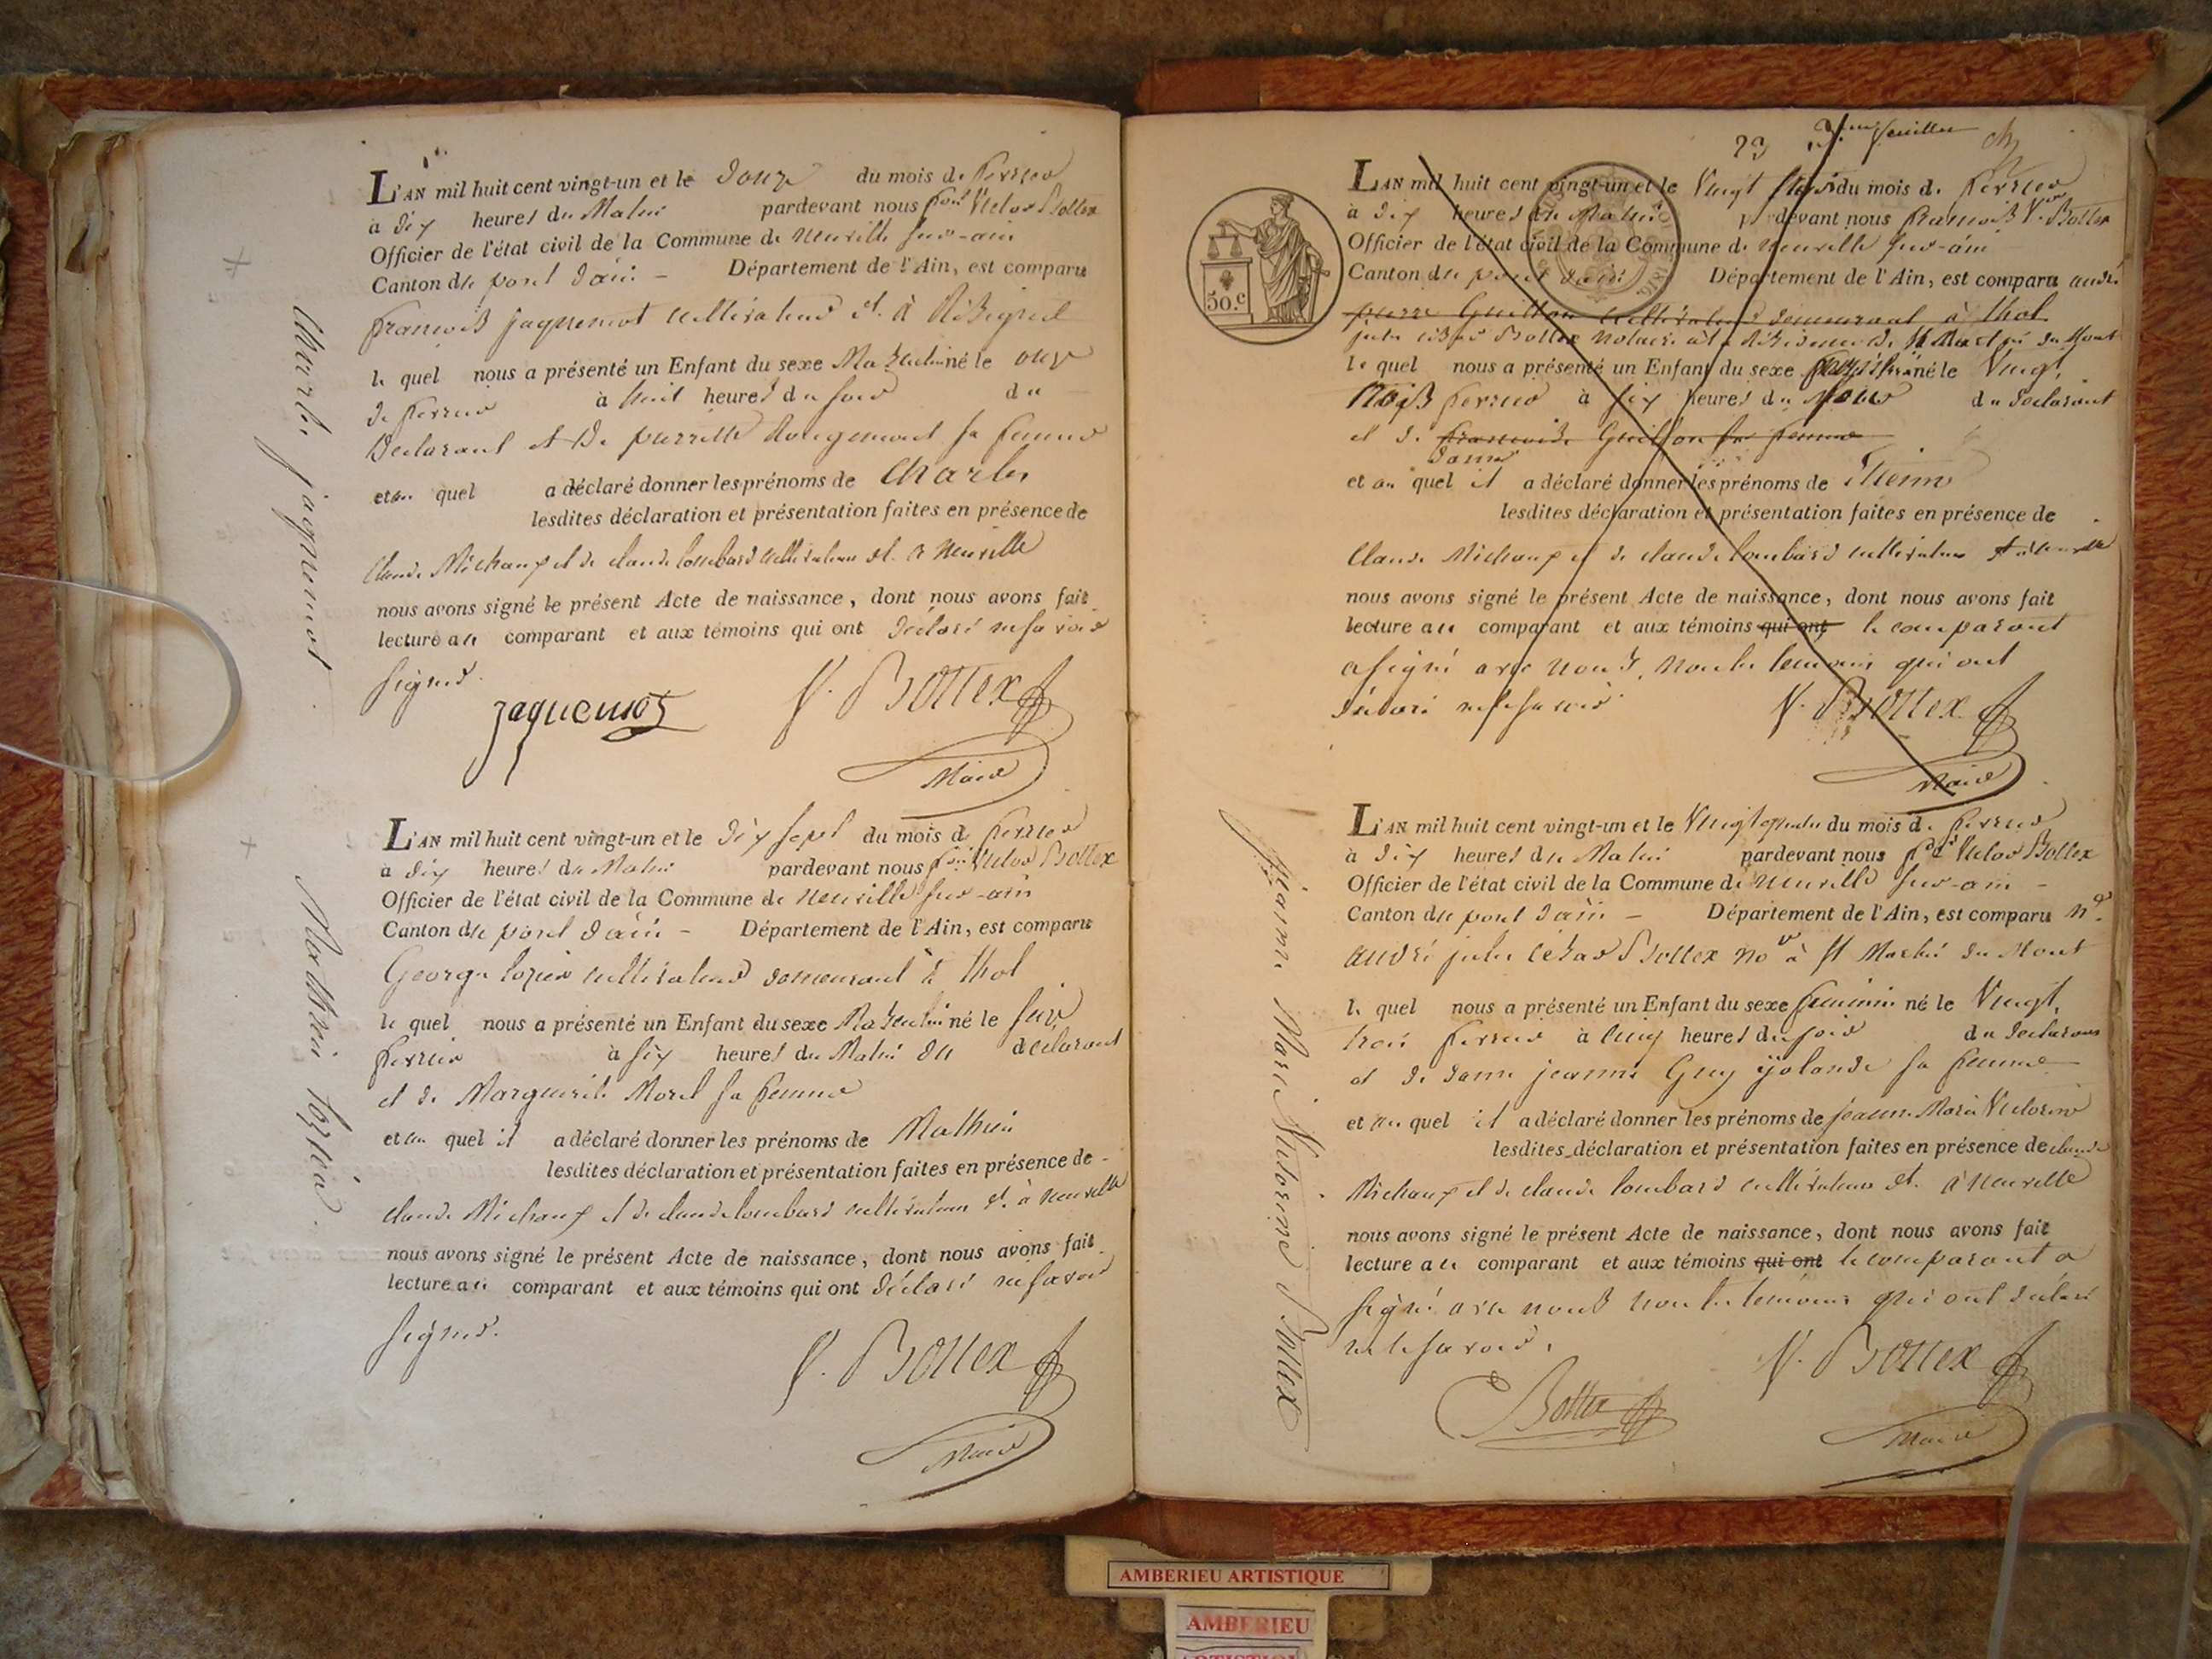 Charles jaquemot
L'AN mil huit cent vingt-un et le douze du mois de fevrier
à dix heures du Matin pardevant nous fois Victor Bottex
Officier de l'état civil de la Commune de neuville sur-ain
Canton de pont dain - Département de l'Ain, est comparu
francois jaquemot cultivateur dt. à Résignel
le quel nous a présenté un Enfant du sexe Masculin né le onze
de fevrier à huit heures du soir du
Declarant et De pierrette Rougemont sa femme
et au quel a déclaré donner les prénoms de Charles
lesdites déclaration et présentation faites en présence de
Claude Michaux et de claude lombard cultivateurs dt. à neuville
nous avons signé le présent Acte de naissance, dont nous avons fait
lecture au comparant et aux témoins qui ont déclaré ne savoir
signer.
jaquemot V. Bottex
Maire
Mathieu lozier
L'AN mil huit cent vingt-un et le dix sept du mois de fevrier
à dix heures du Matin pardevant nous fois Victor Bottex
Officier de l'état civil de la Commune de neuville sur-ain
Canton de pont dain - Département de l'Ain, est comparu
George lozier cultivateur demeurant à thol
le quel nous a présenté un Enfant du sexe Masculin né le
fevrier à six heures du Matin du declarant
et de Marguerite Morel sa femme
et au quel il a déclaré donner les prénoms de Mathieu
lesdites déclaration et présentation faites en présence de -
claude Michaux et de claude lombard cultivateurs dt. à neuville
nous avons signé le présent Acte de naissance, dont nous avons fait
lecture au comparant et aux témoins qui ont déclaré ne savoir
signer.
V. Bottex
Maire
23 3eme feuillet
L'AN mil huit cent vingt-un et le Vingt trois du mois de fevrier
à dix heures du Matin pardevant nous francois Vor Bottex
Officier de l'état civil de la Commune de neuville sur-ain
Canton de pont dain Département de l'Ain, est comparu andré
50.c
pierre Guillon cultivateur demeurant à thol
jules césar Bottex notaire à la Résidence de St Martin du Mont
le quel nous a présenté un Enfant du sexe né le Vingt
trois fevrier à six heures du soir du declarant
et de francoise Guillon sa femme
dame
et au quel il a déclaré donner les prénoms de Etienne
lesdites déclaration et présentation faites en présence de
Claude Michaux et de claude lombard cultivateurs
nous avons signé le présent Acte de naissance, dont nous avons fait
lecture au comparant et aux témoins qui ont le comparant
a signé avec nous, non les temoins qui ont
déclaré ne le savoir
V. Bottex
Maire
jeanne Marie Victorine Bottex
L'AN mil huit cent vingt-un et le Vingt quatre du mois de fevrier
à dix heures du Matin pardevant nous fois Victor Bottex
Officier de l'état civil de la Commune de neuville sur-ain -
Canton de pont dain - Département de l'Ain, est comparu
andré jules César Bottex nore à St Martin du Mont
le quel nous a présenté un Enfant du sexe feminin né le Vingt
trois fevrier à cinq heures du soir du declarant
et de dame jeanne Guy yolande sa femme
et au quel il a déclaré donner les prénoms de jeanne Marie Victorine
lesdites déclaration et présentation faites en présence de claude
Michaux et de claude lombard cultivateurs dt. à neuville
nous avons signé le présent Acte de naissance, dont nous avons fait
lecture au comparant et aux témoins qui ont le comparant a
signé avec nous non les temoins qui ont déclaré
ne le savoir.
Bottex V. Bottex
Maire
AMBERIEU ARTISTIQUE
AMBERIEU
ARTISTIQUE